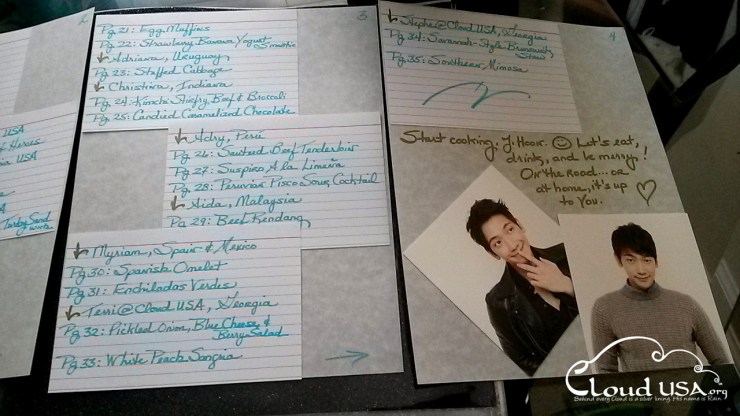 2
USA
Heroes
USA
3
Pg 21: Egg Muffins
Pg 22: Strawberry Banana Yogurt Smoothie
Adriana, Uruguay
Pg 23: Stuffed Cabbage
Christina, Indiana
Pg 24: Kimchi Stirfry, Beef & Broccoli
Pg 25: Candied Caramelized Chocolate
Adry, Perú
Pg 26: Sauteed Beef Tenderloin
Pg 27: Suspiro A la Limeña
Pg 28: Peruvian Pisco Sour, Cocktail
Aida, Malaysia
Pg 29: Beef Rendang
Myriam, Spain & Mexico
Pg 30: Spanish Omelet
Pg 31: Enchiladas Verdes
Terri@Cloud USA, Georgia
Pg 32: Pickled Onion, Blue Cheese & Berry Salad
Pg 33: White Peach Sangria
4
Stephe@Cloud USA, Georgia
Pg 34: Savannah-Style Brunswick Stew
Pg 35: Southern Mimosa
Start cooking, J. Hoon. Let's eat,
drink, and be merry!
On the road... or
at home, it's up
to you.
Cloud USA.org
Behind every Cloud is a silver lining. His name is Rain.